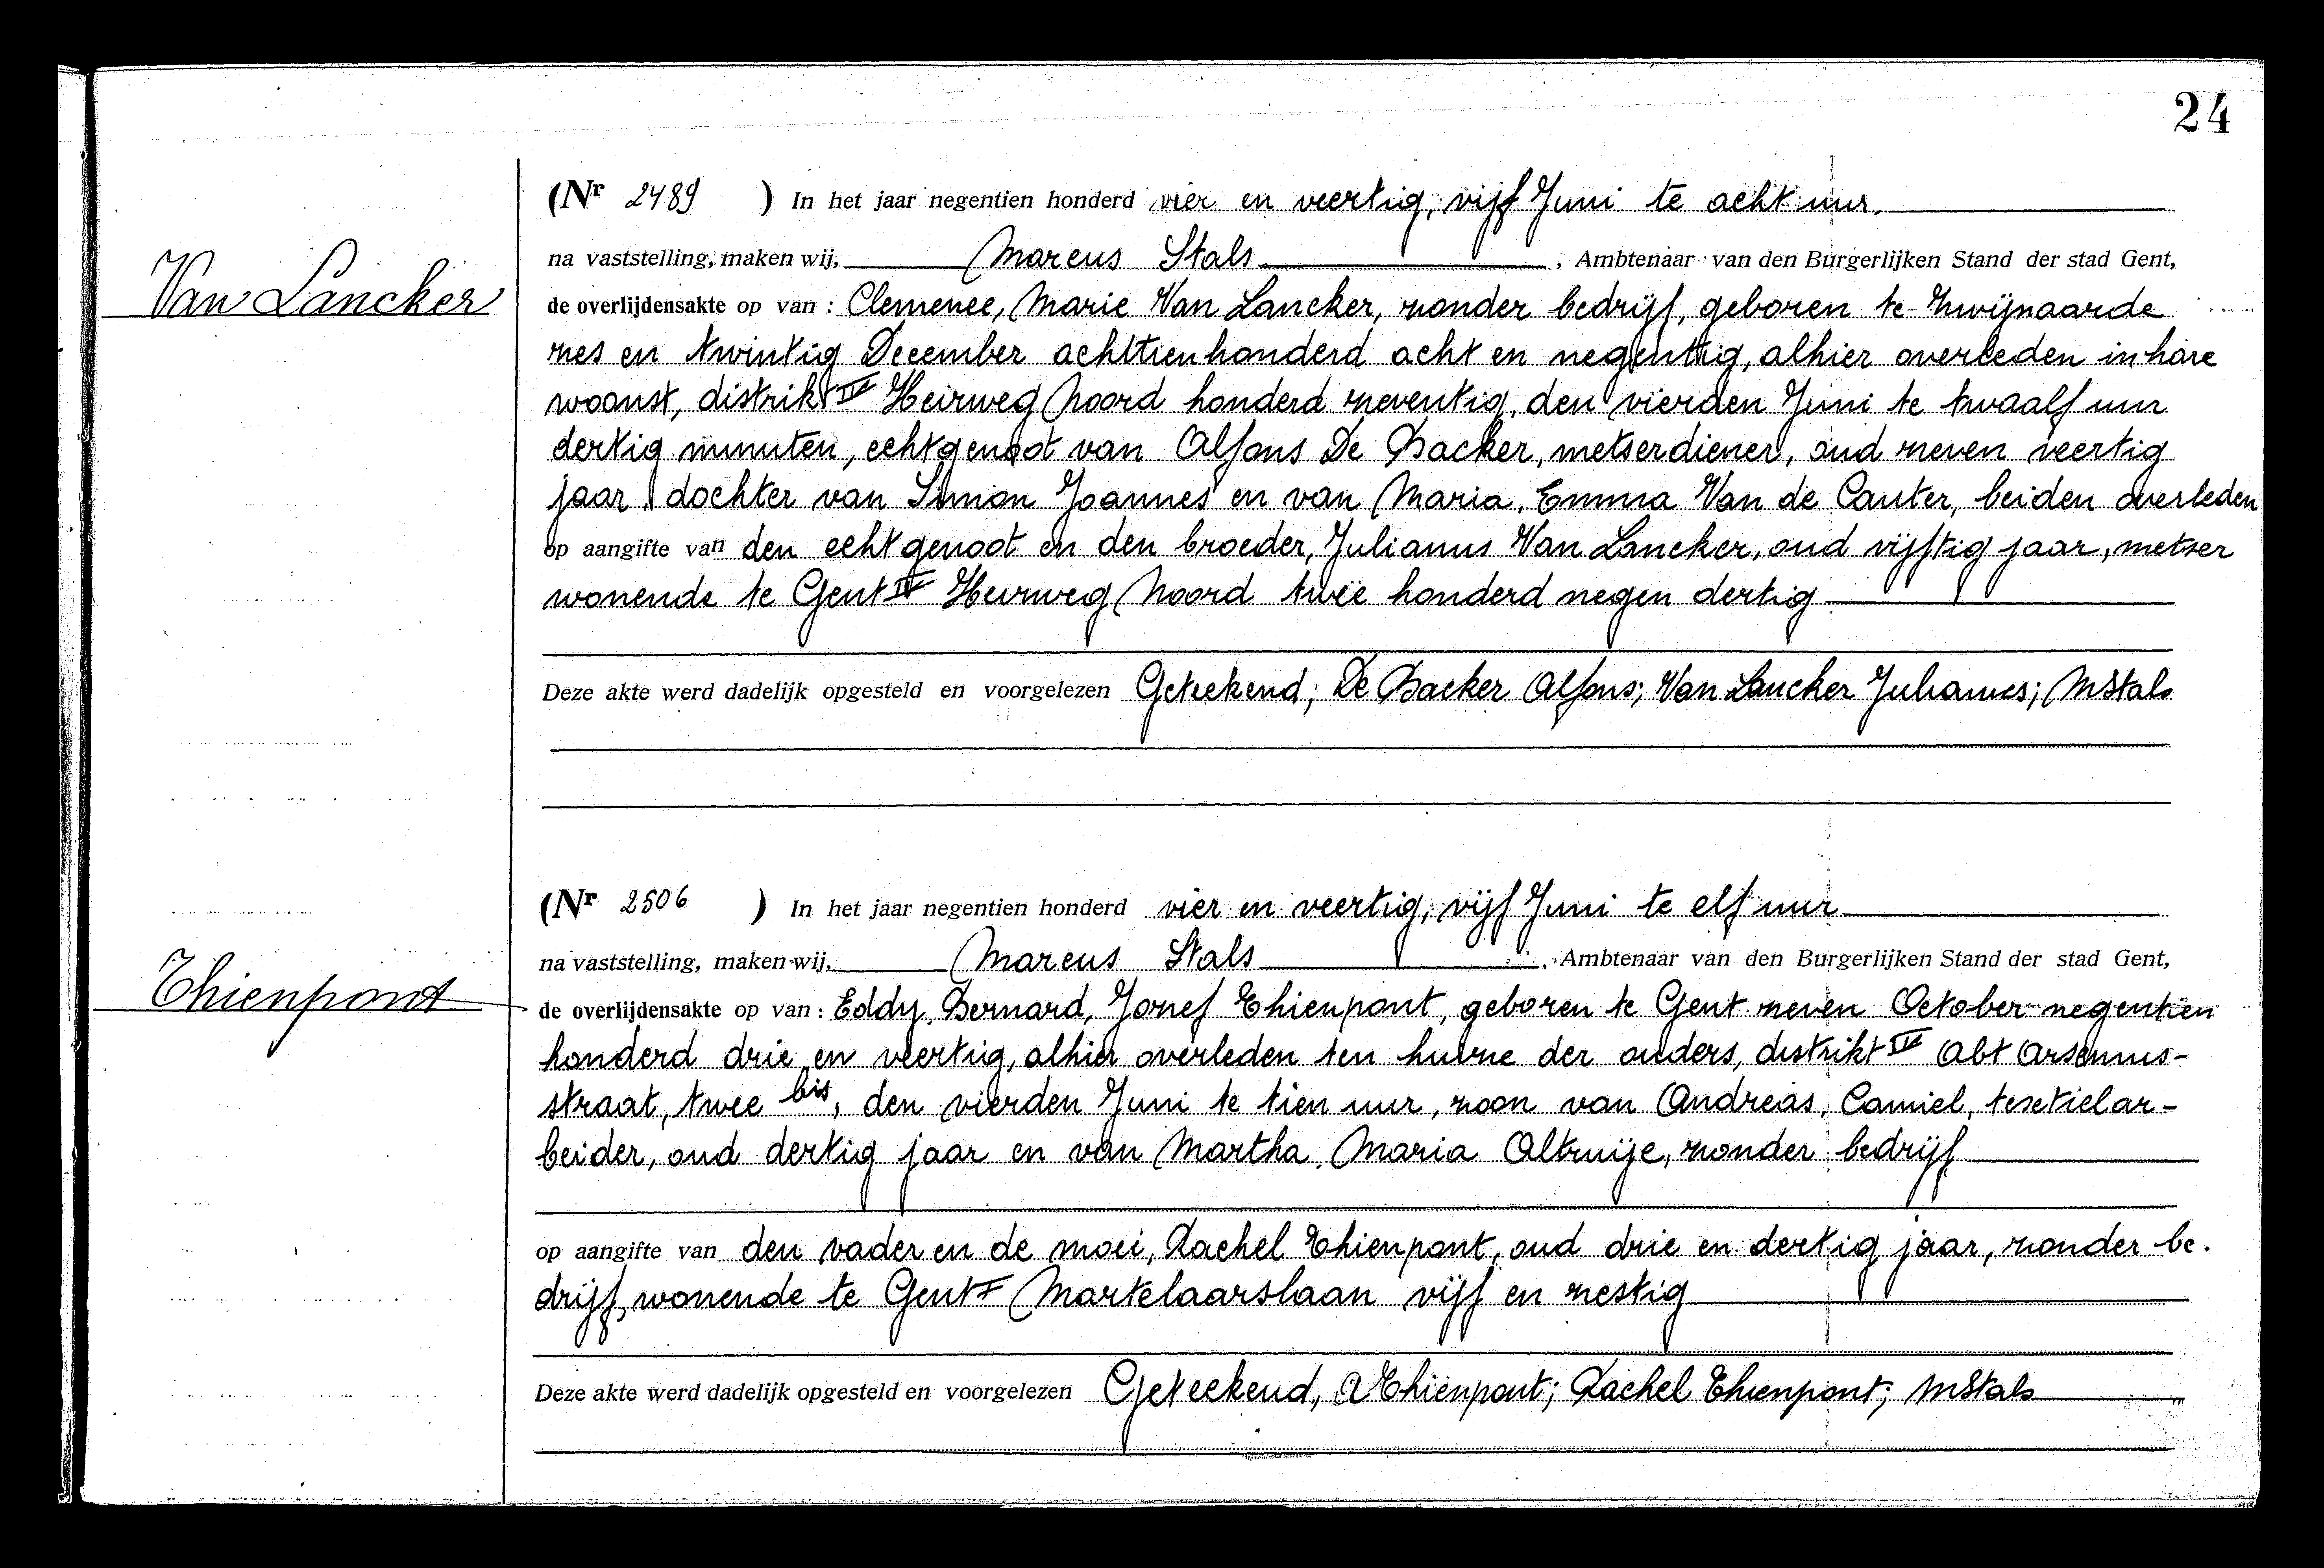 24
(Nr 2489 ) In het jaar negentien honderd vier en veertig, vijf Juni te acht uur.
na vaststelling, maken wij, Marcus Stals , Ambtenaar van den Burgerlijken Stand der stad Gent,
Van Lancker
de overlijdensakte op van : Clemence, Marie Van Lancker, zonder bedrijf, geboren te Zwijnaarde
zes en twintig December achttienhonderd acht en negentig, alhier overleden in hare
woonst, distrikt IV Heirweg Noord honderd zeventig, den vierden Juni te twaalf uur
dertig minuten, echtgenoot van Alfons De Backer, metserdiener, oud zeven veertig
jaar, dochter van Simon Joannes en van Maria, Emma Van de Cauter, beiden overleden
op aangifte van den echtgenoot en den broeder, Julianus Van Lancker, oud vijftig jaar, metser
wonende te Gent IV Heirweg Noord twee honderd negen dertig
Deze akte werd dadelijk opgesteld en voorgelezen Geteekend; De Backer Alfons; Van Lancker Julianus; M Stals
(Nr 2506 ) In het jaar negentien honderd vier en veertig, vijf Juni te elf uur
na vaststelling, maken wij, Marcus Stals , Ambtenaar van den Burgerlijken Stand der stad Gent,
Thienpont
de overlijdensakte op van : Eddy, Bernard, Jozef Thienpont, geboren te Gent zeven October negentien
honderd drie en veertig, alhier overleden ten huize der ouders, distrikt IV Abt Arsenius-
straat, twee bis, den vierden Juni te tien uur, zoon van Andreas, Camiel, textielar-
beider, oud dertig jaar en van Martha, Maria Altruije, zonder bedrijf
op aangifte van den vader en de moei, Rachel Thienpont, oud drie en dertig jaar, zonder be.
drijf, wonende te Gent I Martelaarslaan vijf en zestig
Deze akte werd dadelijk opgesteld en voorgelezen Geteekend, A Thienpont; Rachel Thienpont; M Stals